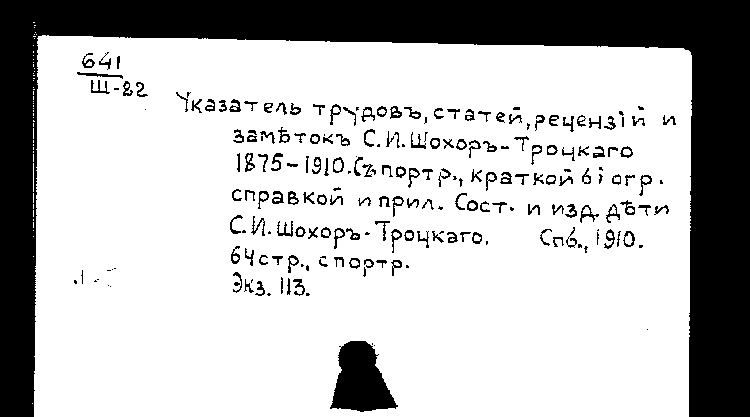 641
Ш-82
Указатель трудовъ, статей, рецензiй и
замѣтокъ С.И.Шохоръ-Троцкаго
1875-1910. Съ портр., краткой бiогр.
справкой и прил. Сост. и изд. дѣти
С.И.Шохоръ-Троцкаго. Спб., 1910.
64 стр., с портр.
Экз. 113.